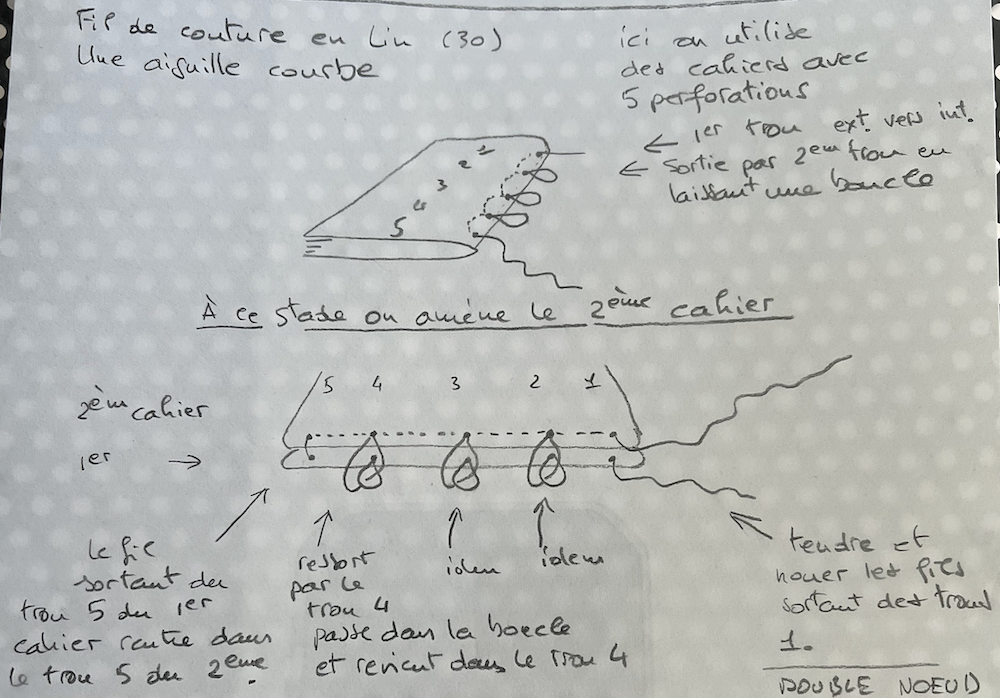 Fil de couture en Lin (30)
Une aiguille courbe
ici on utilise
des cahiers avec
5 perforations
← 1er trou ext. vers int.
← Sortie par 2em trou en
laissant une boucle
1
2
3
4
5
À ce stade on amène le 2ème cahier
5 4 3 2 1
2èm cahier
1er →
le fil
sortant du
trou 5 du 1er
cahier rentre dans
le trou 5 du 2eme.
ressort
par le
trou 4
passe dans la boucle
et revient dans le trou 4
idem
idem
tendre et
nouer les fils
sortant des trous
1.
DOUBLE NOEUD